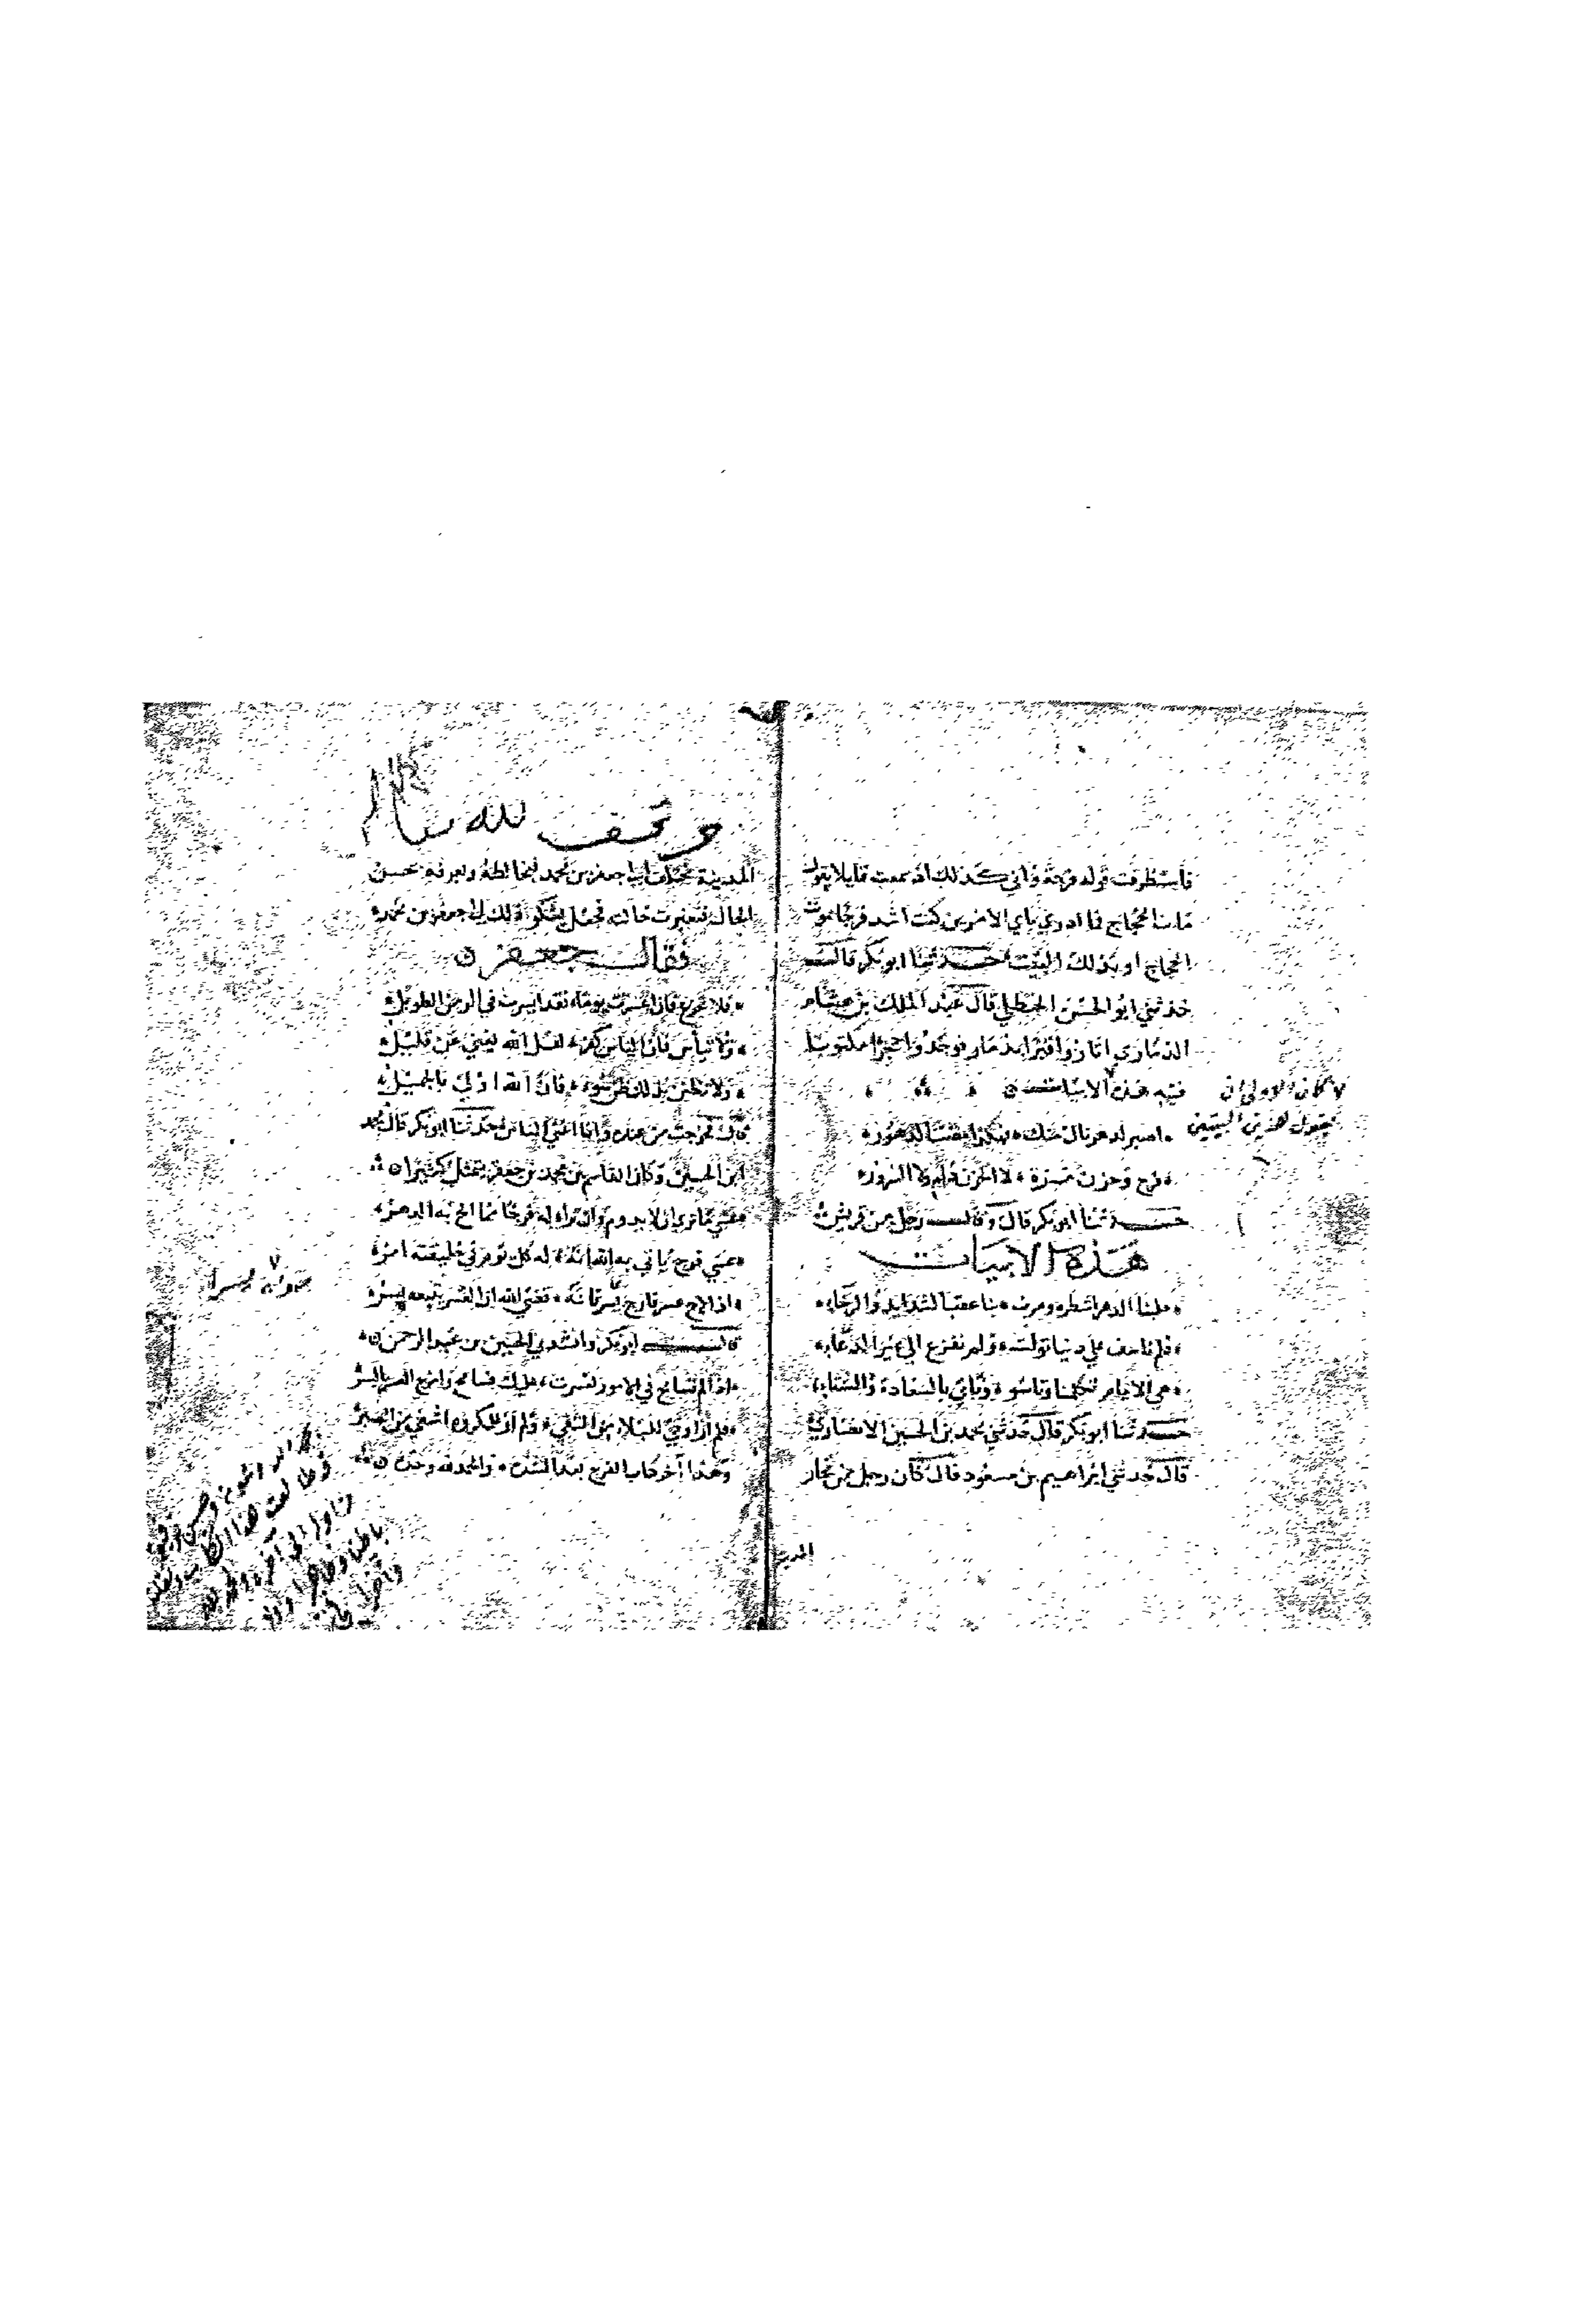 فاستطرفت قوله فرجة فاني كذلك اذ سمعت قايلا يقول
مات الحجاج فما ادري باي الامرين كنت اشد فرحا بموت
الحجاج او بذلك البيت حدثنا ابو بكر قال
حدثني ابو الحسن الحنظلي قال عبد الملك بن هشام
الذماري اثاروا قبرا بذمار فوجدوا حجرا مكتوبا
فيه هذه الابيات
اصبر لدهر نال منك فهكذا مضت الدهور
فرح وحزن مرة لا الحزن دام ولا السرور
حدثنا ابو بكر قال وقال رجل من قريش
هذه الابيات
حلبنا الدهر اشطره ومرت بنا عقب الشدايد والرخاء
فلم ناسف على دنيا تولت ولم نفزع الى غير الدعاء
هي الايام تكلمنا وتاسو وتاتي بالسعادة والشقاء
حدثنا ابو بكر قال حدثني محمد بن الحسين الانصاري
قال حدثني ابراهيم بن مسعود قال كان رجل من تجار
المدينة
كان الاولى ان
يحول هذين البيتين
وقف لله تعالى
المدينة يختلف الى جعفر بن محمد فيخالطه ويعرفه بحسن
الحال فتغيرت حالته فجعل يشكو ذلك الى جعفر بن محمد
فقال جعفر
فلا تجزع فان اعسرت يوما فقد ايسرت في الزمن الطويل
ولا تيأس فان اليأس كفر لعل الله يغني عن قليل
ولا تظنن بربك ظن سوء فان الله اولى بالجميل
قال فخرجت من عنده وانا اغنى الناس حدثنا ابو بكر قال محمد
ابن الحسين وكان القاسم بن محمد بن جعفر يتمثل كثيرا
عسى ما ترى ان لا يدوم وان ترى له فرجا مما الح به الدهر
عسى فرج ياتي به الله انه له كل يوم في خليقته امر
اذا لاح عسر فارج يسرا فانه قضى الله ان العسر يتبعه يسر
قال ابو بكر وانشدني الحسين بن عبد الرحمن
اذا لم تسامح في الامور تعسرت عليك فسامح وامزج العسر باليسر
فلم ار اوفى للبلاء من التقى ولم ار للمكروه اشفى من الصبر
وهذا آخر كتاب الفرج بعد الشدة والحمد لله وحده